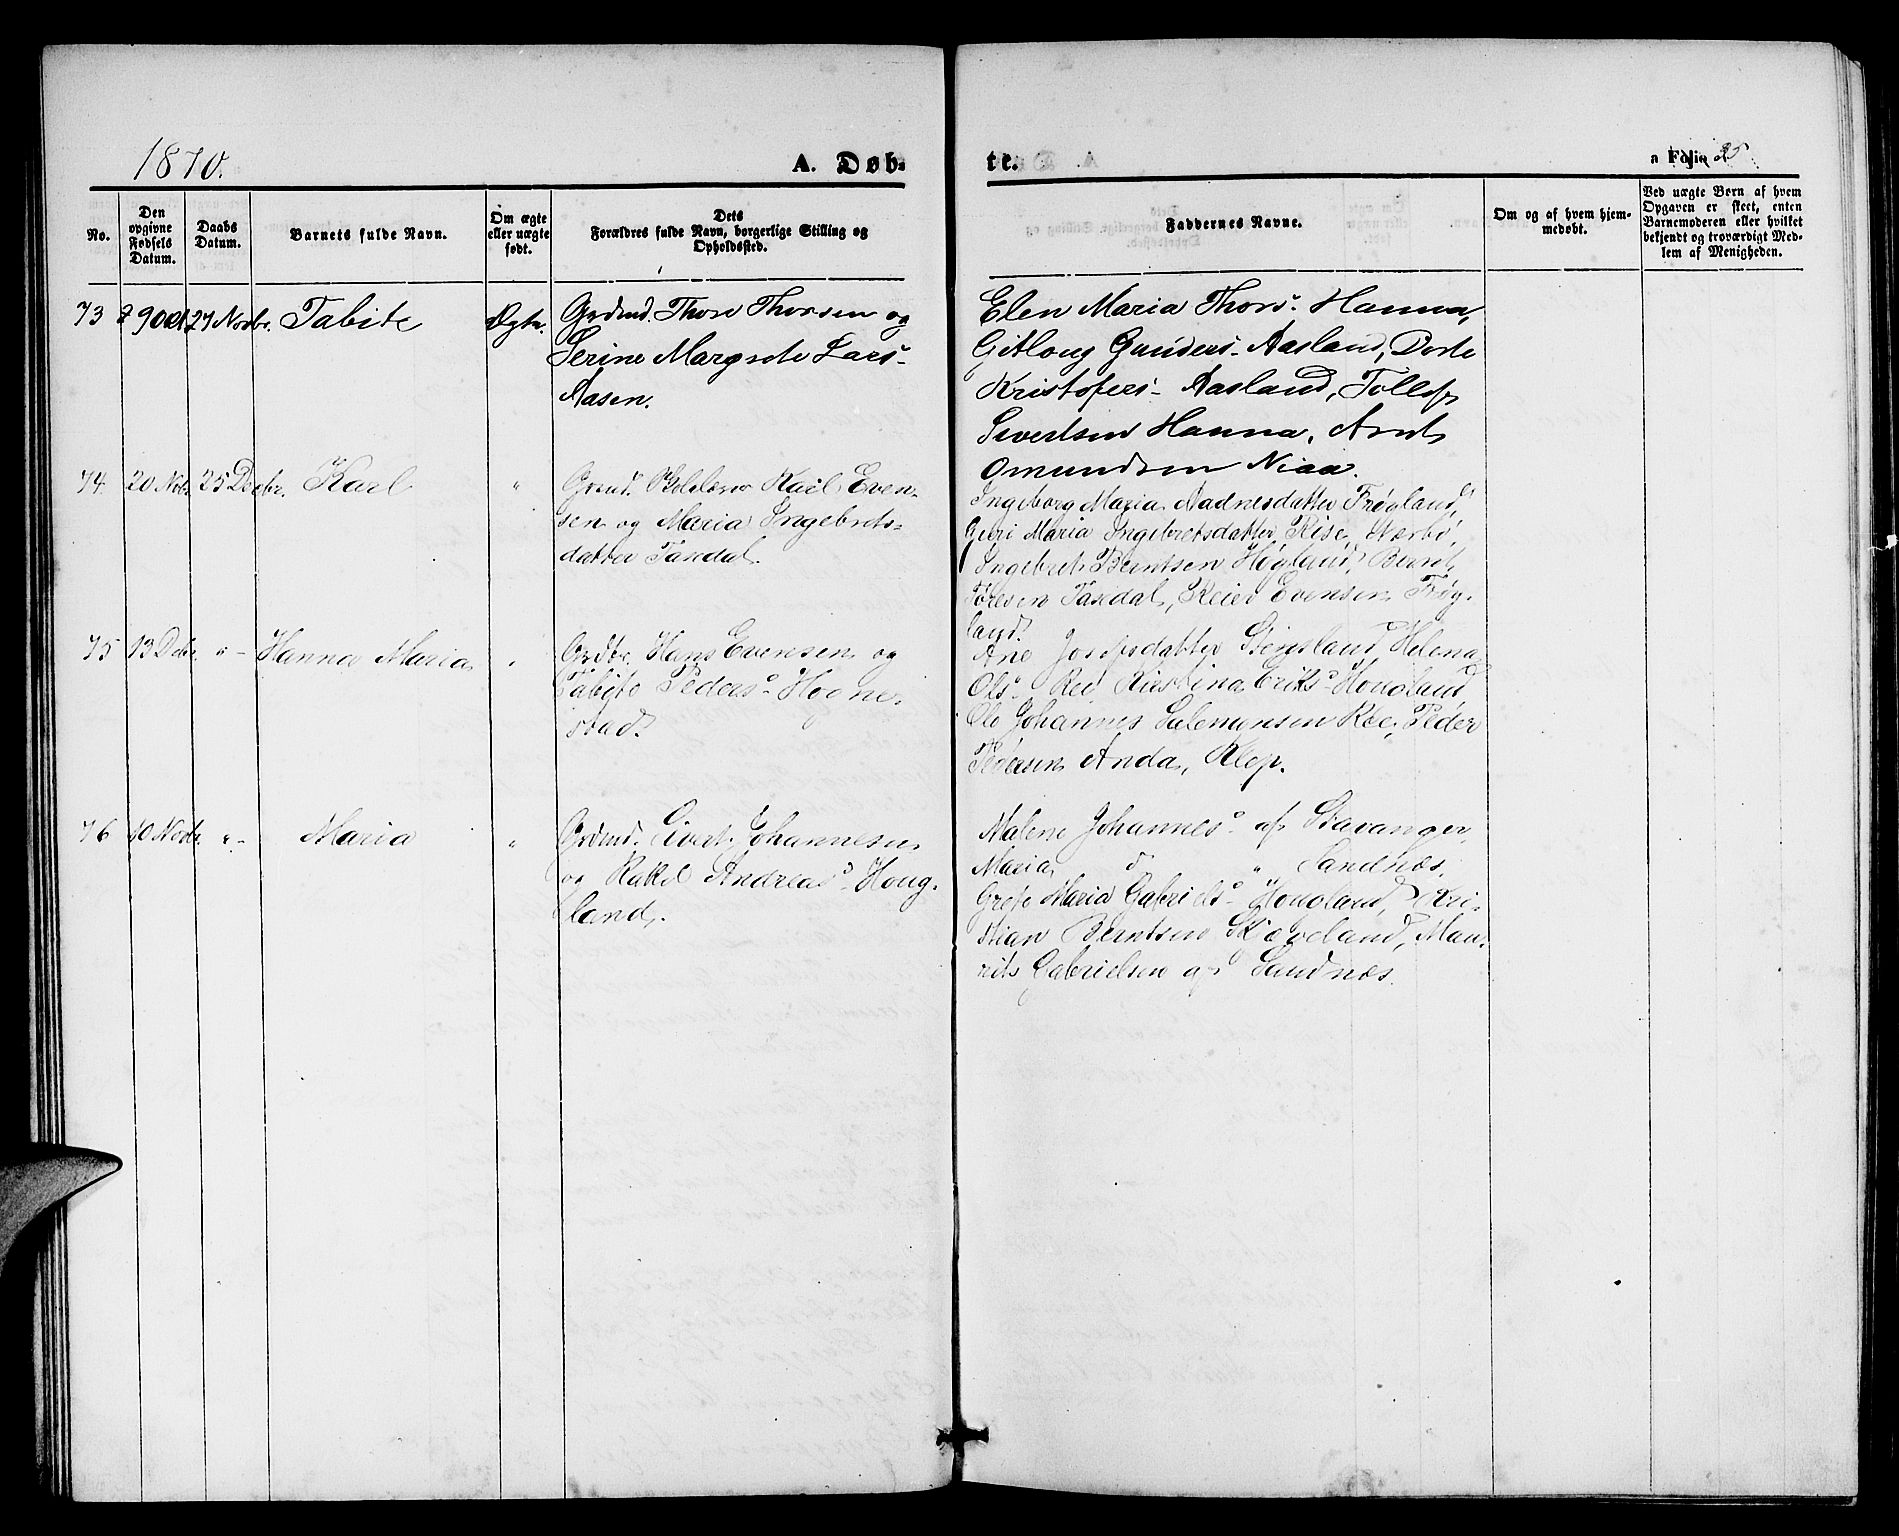 1870.
A. Døb-
te.
Folio 35
No.
Den
opgivne
Fødsels
Datum.
Daabs
Datum.
Barnets fulde Navn.
Om ægte
eller uægte
født.
Dets
Forældres fulde Navn, borgerlige Stilling og
Opholdssted.
Faddernes Navne.
Om og af hvem hjem-
medøbt.
Ved uægte Børn af hvem
Opgaven er skeet, enten
Barnemoderen eller hvilket
bekjendt og troværdigt Med-
lem af Menigheden.
73 29 Oct. 27 Novbr. Tabite Ægte. Grdmd. Thore Thorsen og
Serine Margrete Lars-
Aasen.
Elen Maria Thors- Hanna,
Gitlaug Gunders- Aasland, Dorte
Kristofers- Aasland, Tollef
Sivertsen Hanna, Arnt
Omundsen Niaa.
74. 20 Nobr 25 Decbr. Karl " Grmd. Karl Even-
sen og Maria Ingebrets-
datter Taxdal.
Ingeborg Maria Aadnesdatter Frøyland,
Guri Maria Ingebretsdatter, Rise, Nærbø,
Ingebret Berntsen Høgland, Bernt
Tøresen Taxdal, Reier Evensen Frøy-
land.
75 13 Debr. " - Hanna Maria " Hans Evensen og
Tabite Peders- Hogne-
stad.
Ane Josefsdatter Stensland Helena
Ols- Roe, Kirstina Eriks- Hougland
Ole Johannes Salemonsen Roe, Peder
Pedersen Anda, Klep.
76 10 Novbr. " - Maria " Grdmd. Sivert Johannesen
og Rakel Andreas- Houg-
land.
Malene Johannes- af Stavanger,
Maria d " Sandnæs,
Grete Maria Gabriels- Hougland, Kri-
stian Berntsen Skjæveland, Mau-
rits Gabrielsen af Sandnæs.